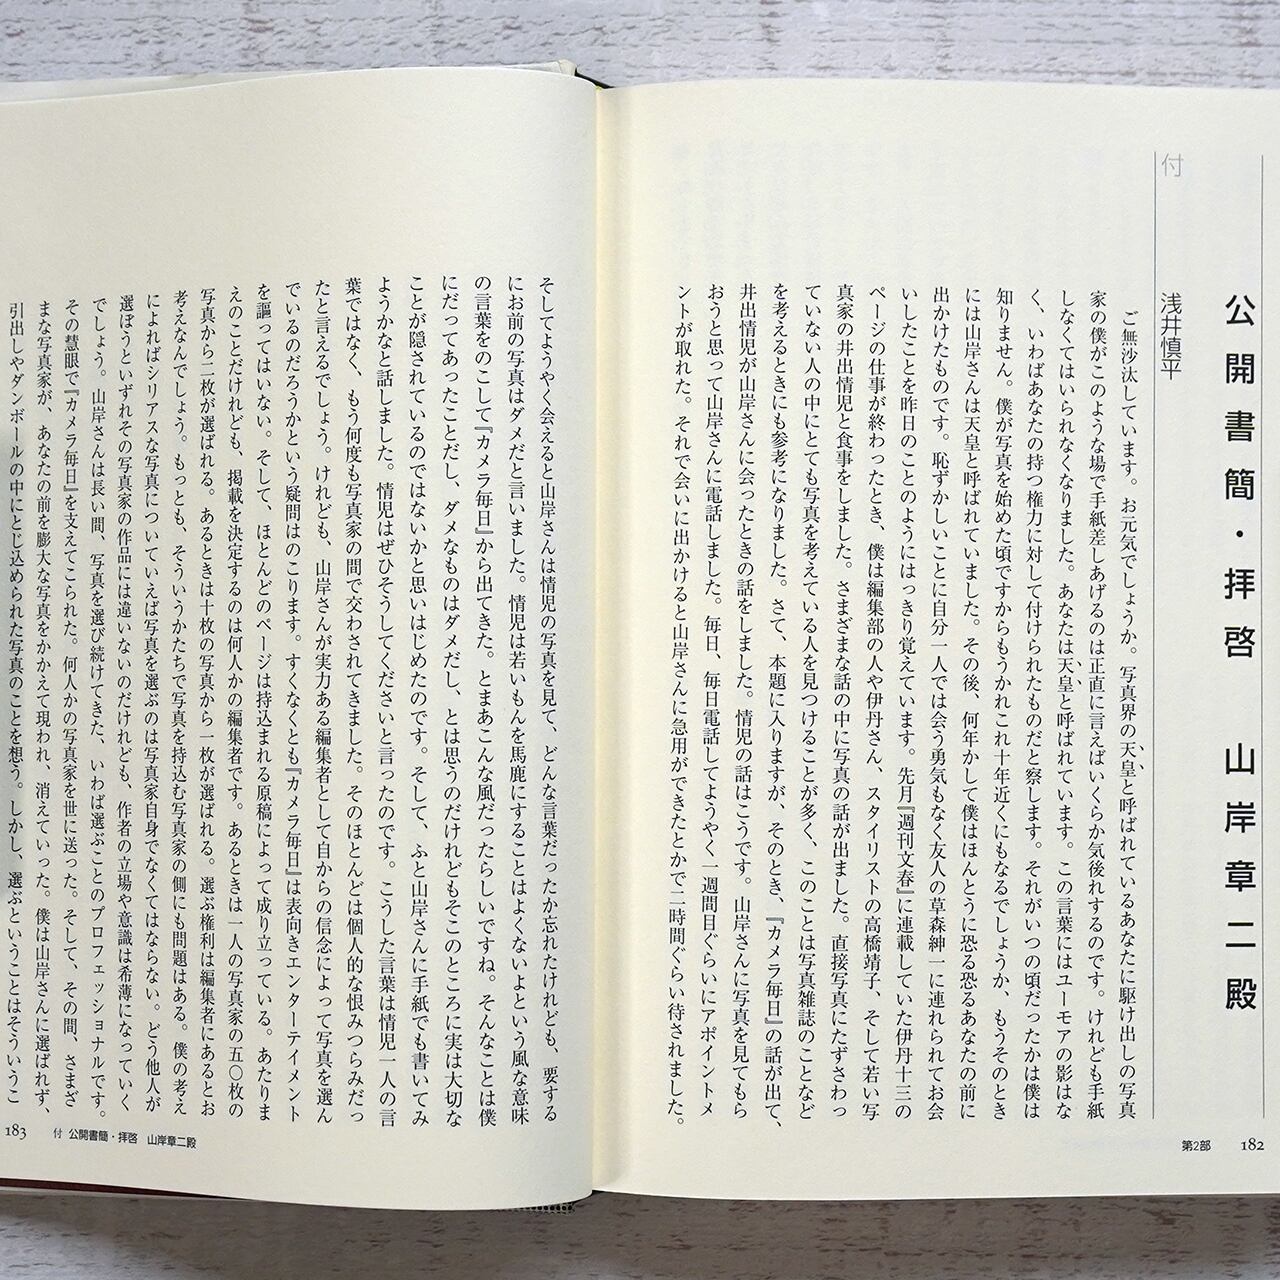 付
公開書簡・拝啓　山岸章二殿
浅井慎平
ご無沙汰しています。お元気でしょうか。写真界の天皇と呼ばれているあなたに駆け出しの写真
家の僕がこのような場で手紙差しあげるのは正直に言えばいくらか気後れするのです。けれども手紙
しなくてはいられなくなりました。あなたは天皇と呼ばれています。この言葉にはユーモアの影はな
く、いわばあなたの持つ権力に対して付けられたものだと察します。それがいつの頃だったかは僕は
知りません。僕が写真を始めた頃ですからもうかれこれ十年近くにもなるでしょうか、もうそのとき
には山岸さんは天皇と呼ばれていました。その後、何年かして僕はほんとうに恐る恐るあなたの前に
出かけたものです。恥ずかしいことに自分一人では会う勇気もなく友人の草森紳一に連れられてお会
いしたことを昨日のことのようにはっきり覚えています。先月『週刊文春』に連載していた伊丹十三の
ページの仕事が終わったとき、僕は編集部の人や伊丹さん、スタイリストの高橋靖子、そして若い写
真家の井出情児と食事をしました。さまざまな話の中に写真の話が出ました。直接写真にたずさわっ
ていない人の中にとても写真を考えている人を見つけることが多く、このことは写真雑誌のことなど
を考えるときにも参考になりました。さて、本題に入りますが、そのとき、『カメラ毎日』の話が出て、
井出情児が山岸さんに会ったときの話をしました。情児の話はこうです。山岸さんに写真を見てもら
おうと思って山岸さんに電話しました。毎日、毎日電話してようやく一週間目ぐらいにアポイントメ
ントが取れた。それで会いに出かけると山岸さんに急用ができたとかで二時間ぐらい待されました。
第2部
182
そしてようやく会えると山岸さんは情児の写真を見て、どんな言葉だったか忘れたけれども、要する
にお前の写真はダメだと言いました。情児は若いもんを馬鹿にすることはよくないよという風な意味
の言葉をのこして『カメラ毎日』から出てきた。とまあこんな風だったらしいですね。そんなことは僕
にだってあったことだし、ダメなものはダメだし、とは思うのだけれどもそこのところに実は大切な
ことが隠されているのではないかと思いはじめたのです。そして、ふと山岸さんに手紙でも書いてみ
ようかなと話しました。情児はぜひそうしてくださいと言ったのです。こうした言葉は情児一人の言
葉ではなく、もう何度も写真家の間で交わされてきました。そのほとんどは個人的な恨みつらみだっ
たと言えるでしょう。けれども、山岸さんが実力ある編集者として自からの信念によって写真を選ん
でいるのだろうかという疑問はのこります。すくなくとも『カメラ毎日』は表向きエンターテイメント
を謳ってはいない。そして、ほとんどのページは持込まれる原稿によって成り立っている。あたりま
えのことだけれども、掲載を決定するのは何人かの編集者です。あるときは一人の写真家の五〇枚の
写真から二枚が選ばれる。あるときは十枚の写真から一枚が選ばれる。選ぶ権利は編集者にあるとお
考えなんでしょう。もっとも、そういうかたちで写真を持込む写真家の側にも問題はある。僕の考え
によればシリアスな写真についていえば写真を選ぶのは写真家自身でなくてはならない。どう他人が
選ぼうといずれその写真家の作品には違いないのだけれども、作者の立場や意識は希薄になっていく
でしょう。山岸さんは長い間、写真を選び続けてきた、いわば選ぶことのプロフェッショナルです。
その慧眼で『カメラ毎日』を支えてこられた。何人かの写真家を世に送った。そして、その間、さまざ
まな写真家が、あなたの前を膨大な写真をかかえて現われ、消えていった。僕は山岸さんに選ばれず、
引出しやダンボールの中にとじ込められた写真のことを想う。しかし、選ぶということはそういうこ
183
付　公開書簡・拝啓　山岸章二殿